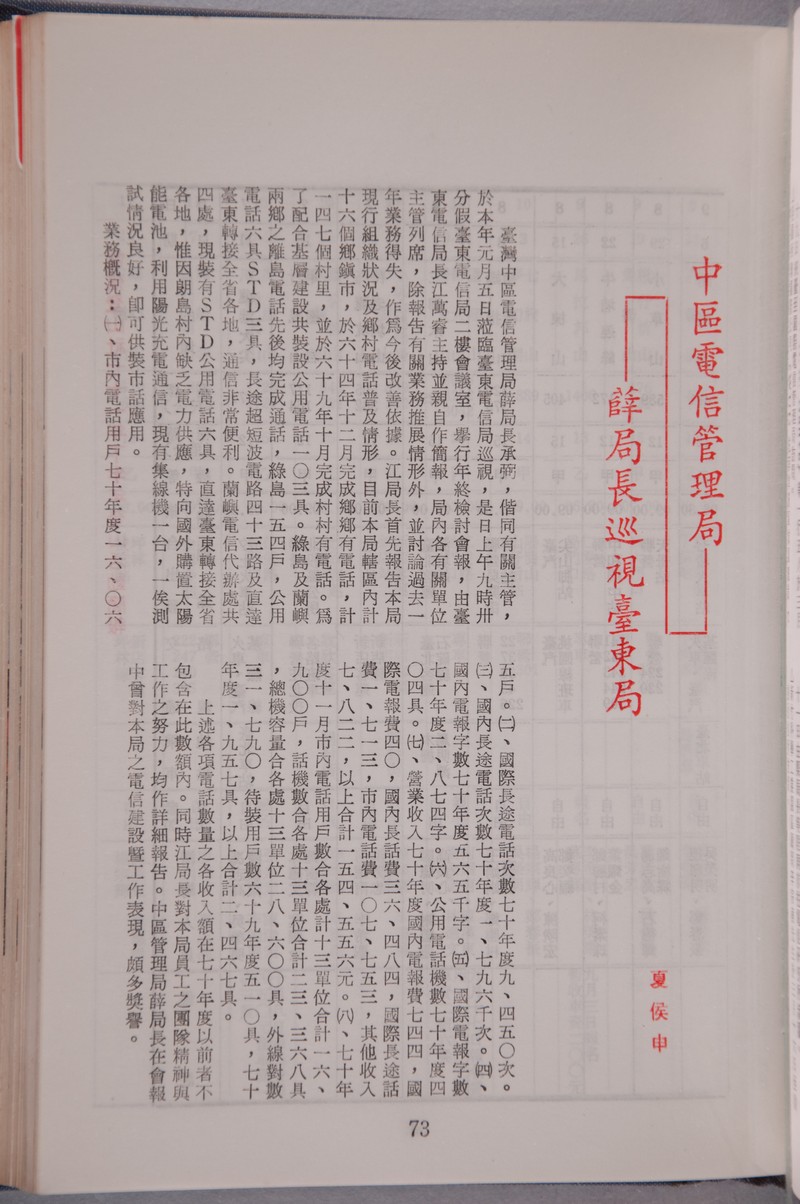 中區電信管理局
薛局長巡視臺東局
夏侯申
臺灣中區電信管理局薛局長承弼，偕同有關主管，
於本年元月五日蒞臨臺東電信局巡視，是日上午九時卅
分假臺東電信局二樓會議室，舉行年終檢討會報，由臺
東電信局長江萬睿主持並親自作簡報，局內各有關單位
主管列席，除報告有關業務推展情形外，並討論過去一
年業務得失，作爲今後改善依據。江局長首先報告本局
現行組織狀況及鄉村電話普及情形，目前本局轄區內計
十六個鄉鎮市，於六十四年十二月完成鄉鄉有電話，計
一四七個村里，並於六十九年十月完成村村有電話。爲
了配合基層建設共裝設公用電話一〇三具。綠島及蘭嶼
兩鄉之離島電話先後均完成通話，綠島一五四戶，公用
電話六具STD三具，長途超短波電路四十三路及直達
臺東轉接全省各地，通信非常便利。蘭嶼電信代辦處共
四處，現裝有STD公用電話六具，直達臺東轉接全省
各地，惟因朗島村內缺乏電力供應，特向國外購置太陽
能電池，利用陽光充電通信，現有集線機一台，一俟測
試情況良好，卽可供裝市話應用。
業務概況：㈠、市內電話用戶七十年度一六、〇六
五戶。㈡、國際長途電話次數七十年度九、四五〇次。
㈢、國內長途電話次數七十年度一、七九六千次。㈣、
國內電報字數七十年度五六五千字。㈤、國際電報字數
七十年度二、八七四字。㈥、公用電話機數七十年度四
〇四具。㈦、營業收入七十年度國內電報費七四四，國
際電報費四〇，國內長話費三六、四八四，國際長途話
費一、七一三，市內電話費一〇七、七五三，其他收入
七、八二二，以上合計一五四、五五六元。㈧、七十年
度十一月市內電話用戶數合各處計十三單位合計一六、
九〇〇戶，話機數合各處十三單位合計二三、三六八具
，總機容量合各處十三單位二八、六〇〇具，外線對數
三一、七九〇，待裝用戶數六十九年度五一〇具，七十
年度一、九五七具，以上合計二、四六七具。
上述各項電話數量之各收入額在七十年度以前者不
包含在此數額內。同時江局長對本局員工之團隊精神與
工作之努力，均作詳細報告。中區管理局薛局長在會報
中曾對本局之電信建設暨工作表現，頗多獎譽。
73